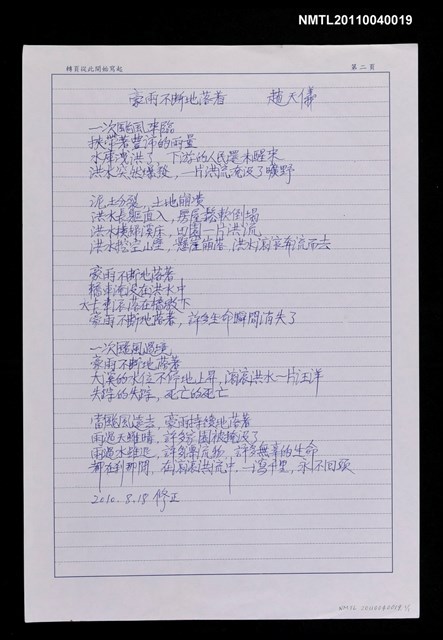 NMTL20110040019
轉頁從此開始寫起
第二頁
豪雨不斷地落著 趙天儀
一次颱風來臨
挾帶著豐沛的雨量
水庫洩洪了，下游的人民還未醒來
洪水突然爆發，一片洪流淹沒了曠野
泥土分裂，土地崩潰
洪水長驅直入，房屋鬆軟倒塌
洪水橫掃溪床，田園一片洪流
洪水挖空山壁，懸崖崩落 洪水滾滾奔流而去
豪雨不斷地落著
轎車淹沒在洪水中
大卡車滾落在橋墩下
豪雨不斷地落著，許多生命瞬間消失了
一次颱風過境
豪雨不斷地落著
大溪的水位不停地上昇，滾滾洪水一片汪洋
失踪的失踪，死亡的死亡
當颱風遠去，豪雨持續地落著
雨過天雖晴，許多家園被掩沒了
雨過水雖退，許多無辜的生命
都在刹那間，在滾滾洪流中，一瀉千里，永不回頭
2010.8.18 修正